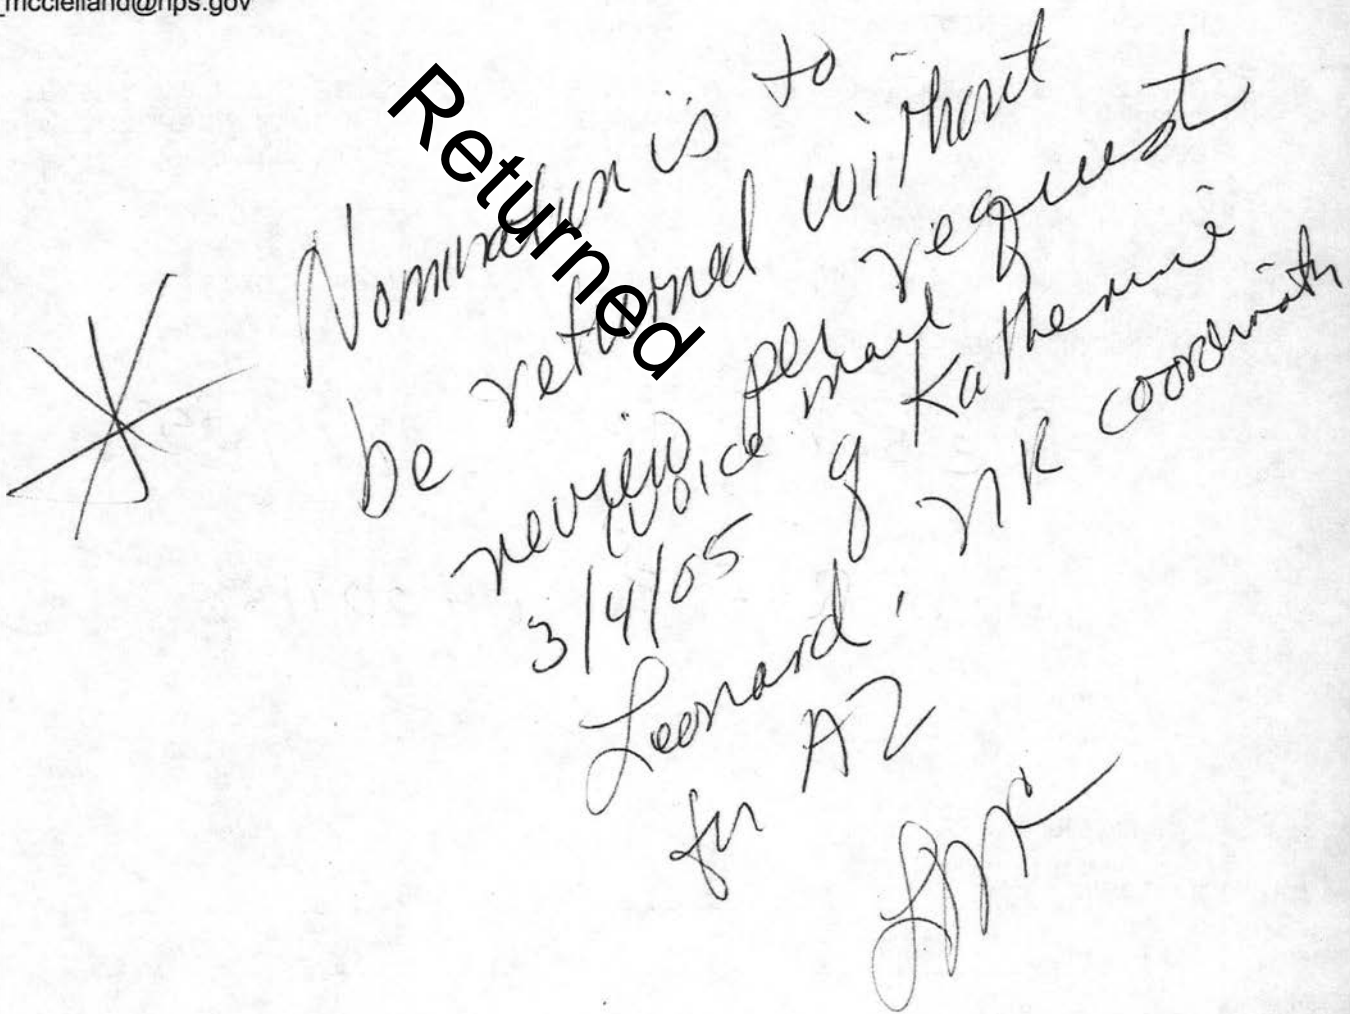 _mcclelland@nps.gov
Returned
Nomination is to
be returned without
review per request
(voice mail
3/4/05 of Katherine
Leonard, NR coordinator
for AZ